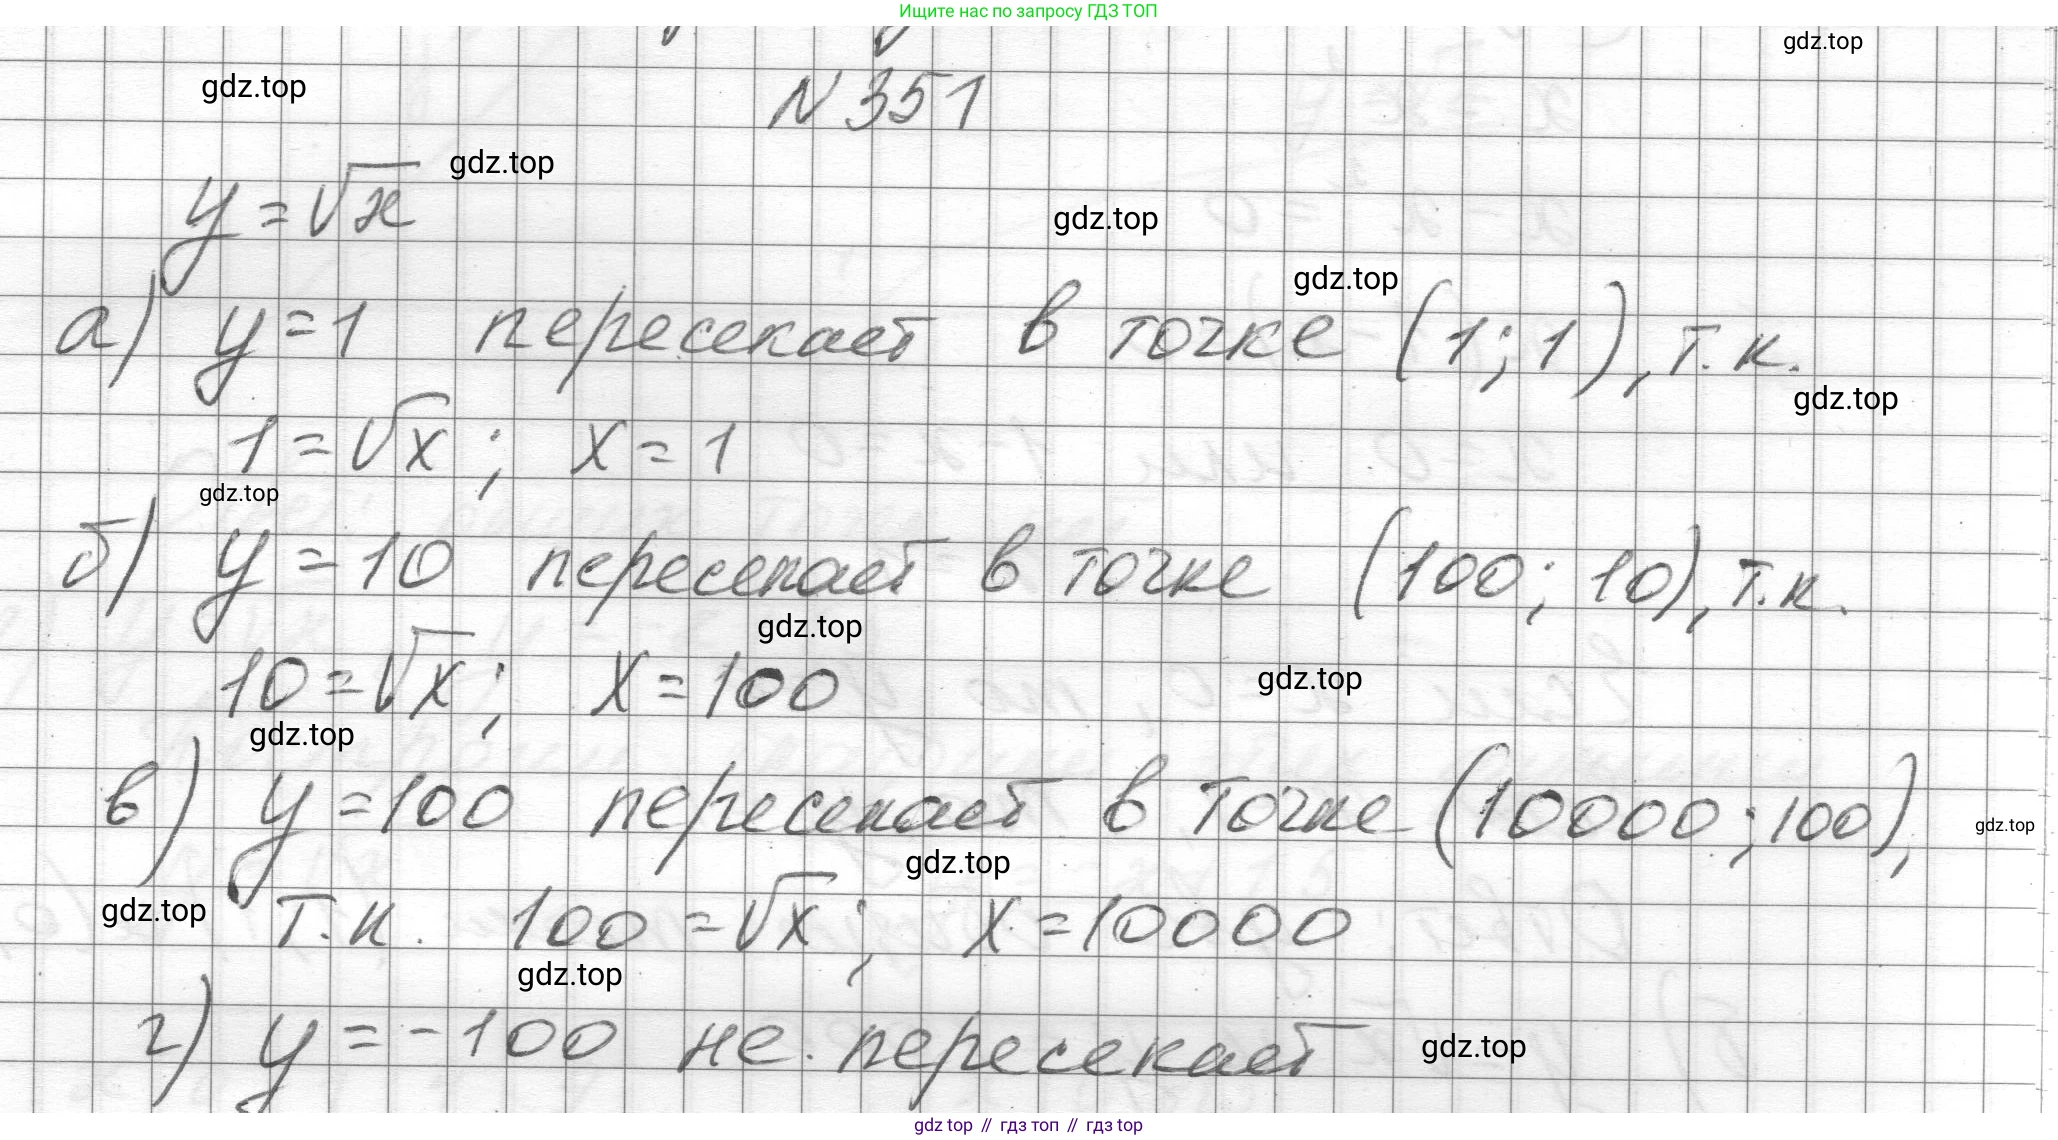 Ищите нас по запросу ГДЗ ТОП
gdz.top
gdz.top
N 351
y = √x
gdz.top
gdz.top
gdz.top
а) y = 1 пересекает в точке (1; 1), т.к.
gdz.top
1 = √x ; x = 1
gdz.top
б) y = 10 пересекает в точке (100; 10), т.к.
gdz.top
10 = √x ; x = 100
gdz.top
gdz.top
в) y = 100 пересекает в точке (10000; 100),
gdz.top
gdz.top
gdz.top
т.к. 100 = √x ; x = 10000
gdz.top
г) y = -100 не пересекает
gdz.top
gdz top // гдз топ // гдз top